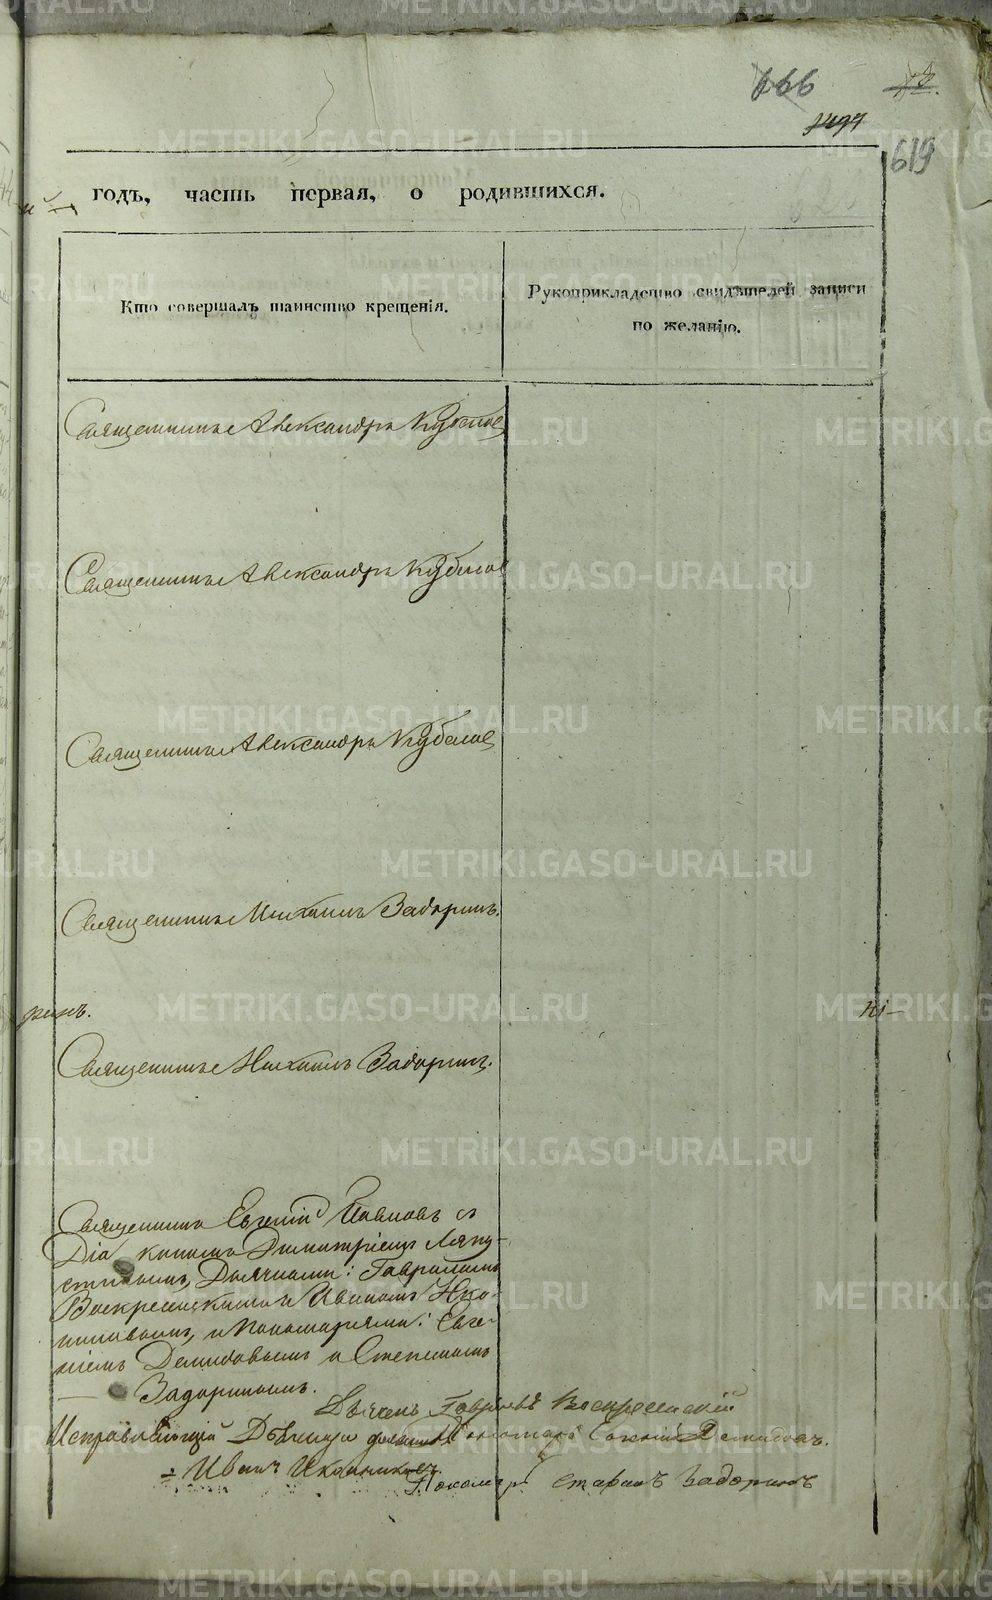 666
1497
619
годъ, часть первая, о родившихся.
Кто совершалъ таинство крещенія.
Рукоприкладство свидѣтелей записи
по желанію.
Священникъ Александръ
Священникъ Александръ
Священникъ Александръ
Священникъ Михаилъ Задоринъ.
ринъ.
Священникъ Михаилъ Задоринъ.
Священникъ Евгеній съ
Діакономъ Димитріемъ Ляпу-
стинымъ, Дьячками: Гавріиломъ
Воскресенскимъ и Иваномъ Ико-
никовымъ, и Пономарями: Евге-
ніемъ Демидовымъ и Стефаномъ
Задоринымъ.
Дьячекъ Гавріилъ Воскресенскій
Исправляющій Дьячище должность Пономарь Евгеній Демидовъ.
Иванъ Иконниковъ.
Пономарь Стефанъ Задоринъ
METRIKI.GASO-URAL.RU